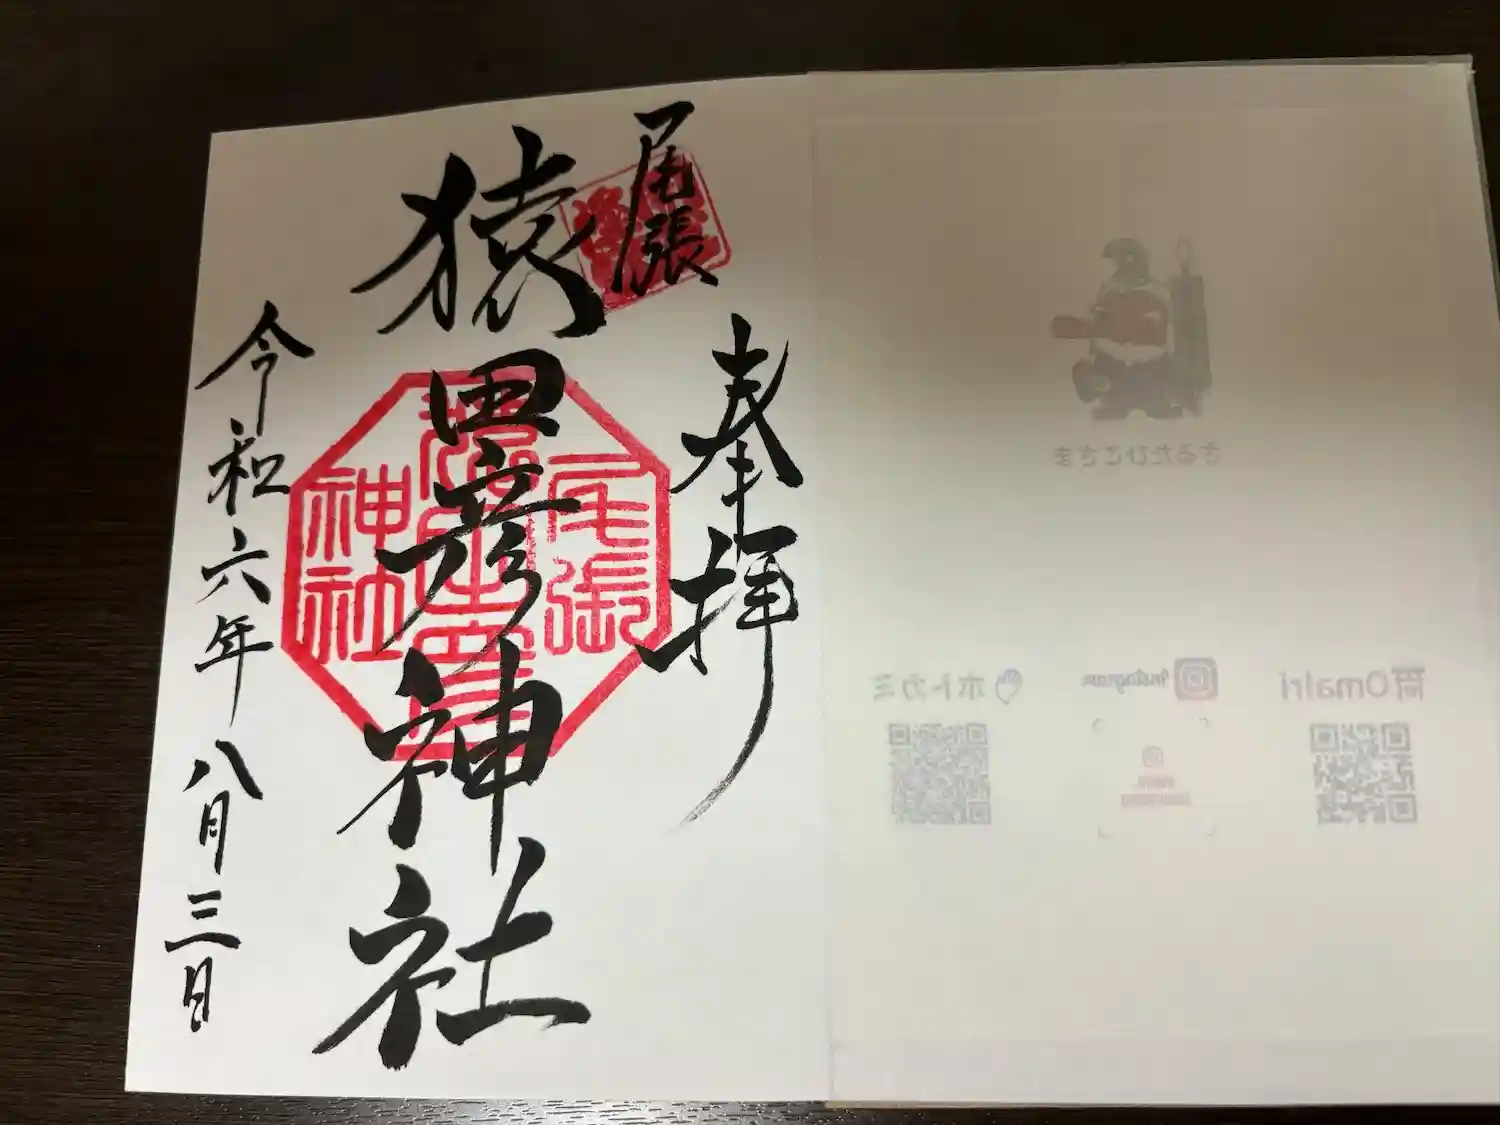 尾張
奉拝
猿田彦神社
令和六年八月三日
尾張
猿田彦
神社
さるたひこさま
Omairi
Instagram
ホトカミ